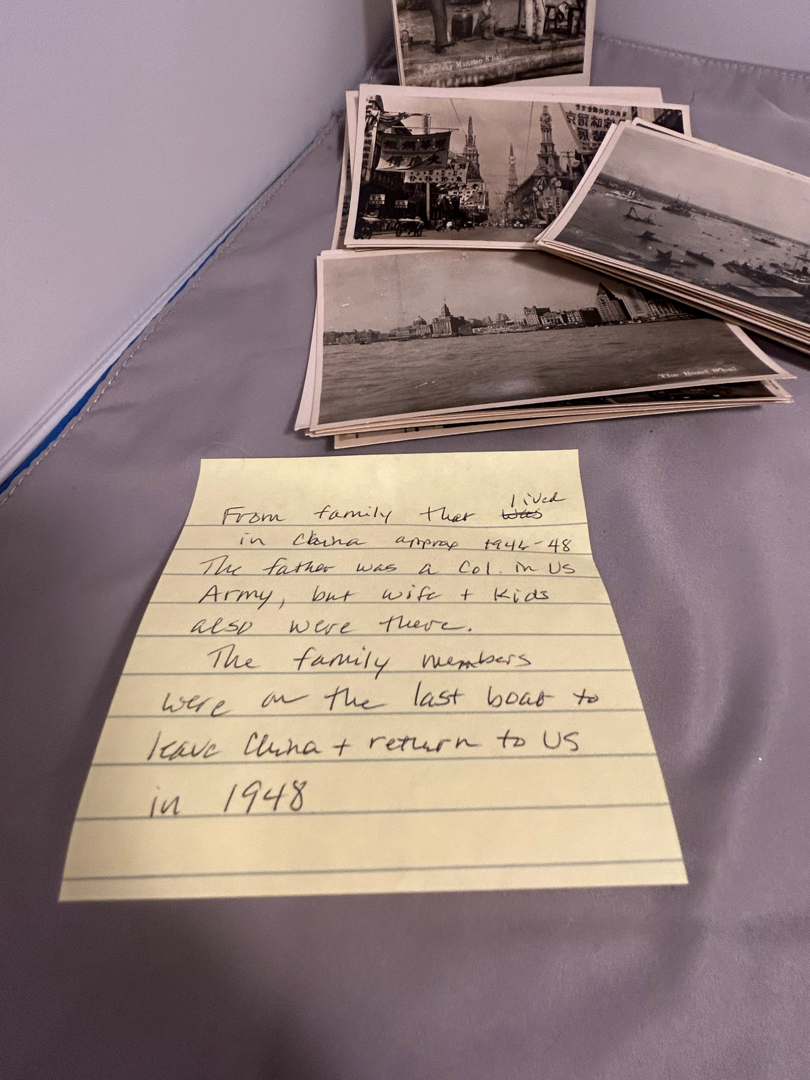 The Bund S'hai
From family that was lived
in China approx 1946-48
The father was a Col. in US
Army, but wife + kids
also were there.
The family members
were on the last boat to
leave China + return to US
in 1948